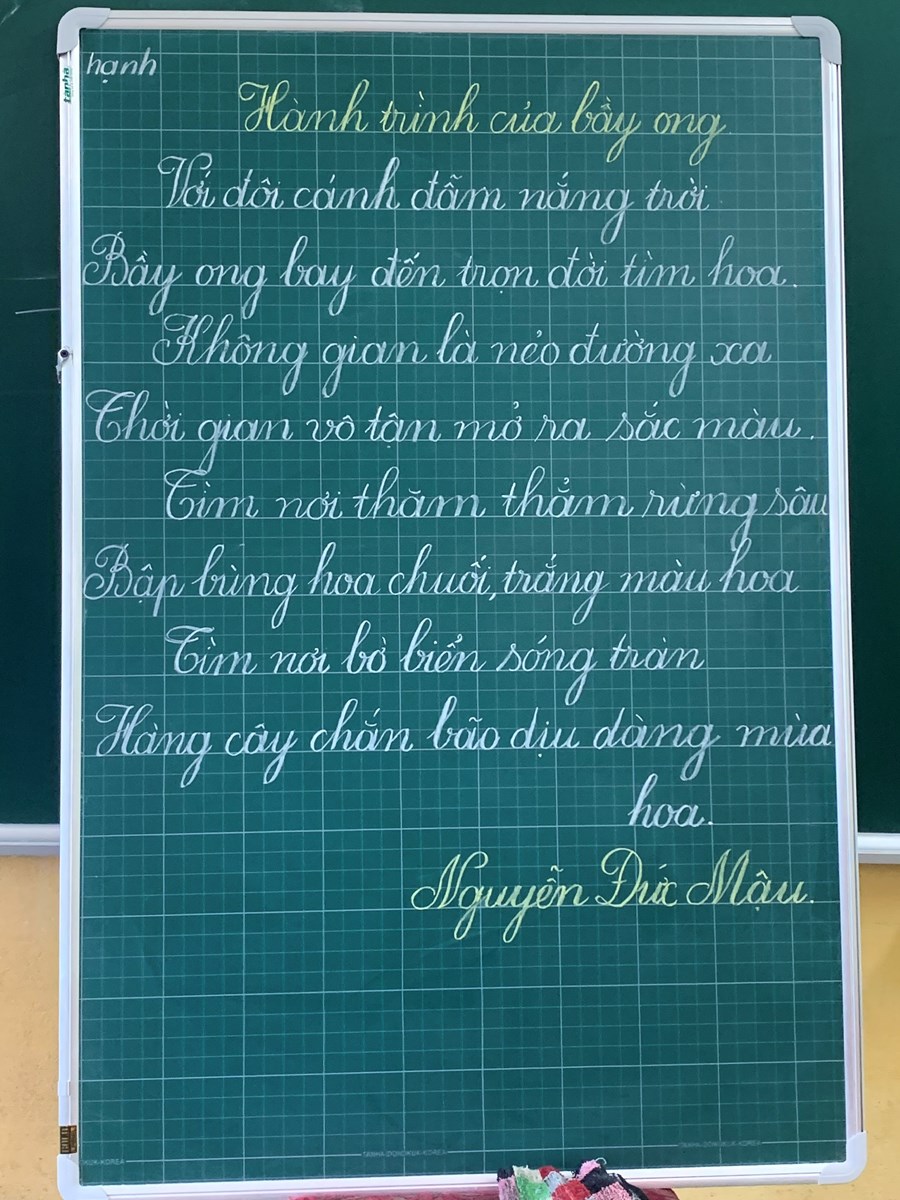 hạnh
tanha
Hành trình của bầy ong.
Với đôi cánh đẫm nắng trời
Bầy ong bay đến trọn đời tìm hoa.
Không gian là nẻo đường xa
Thời gian vô tận mở ra sắc màu.
Tìm nơi thăm thẳm rừng sâu
Bập bùng hoa chuối, trắng màu hoa
Tìm nơi bờ biển sóng tràn
Hàng cây chắn bão dịu dàng mùa
hoa.
Nguyễn Đức Mậu.